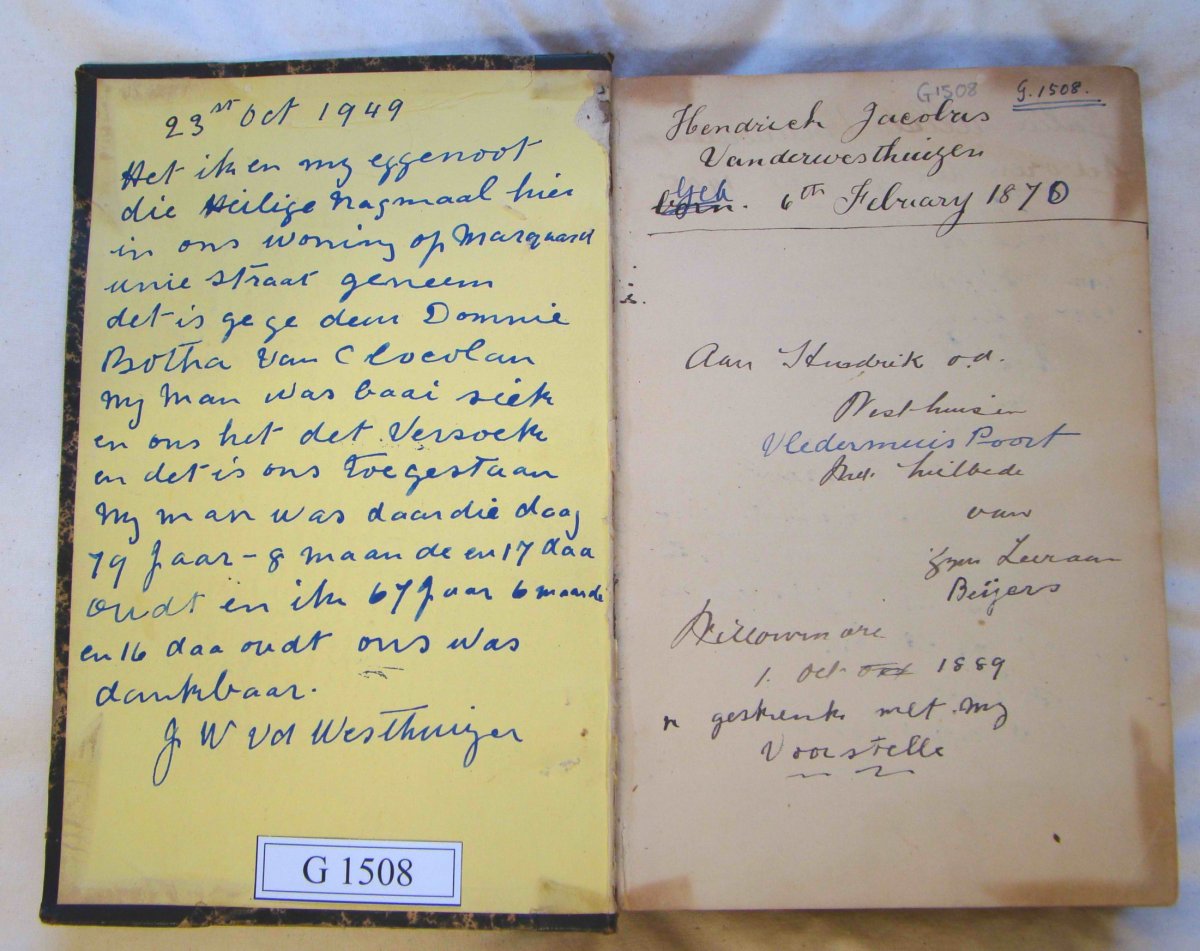 23st Oct 1949
Het ik en my eggenoot
die Heilige Nagmaal hier
in ons woning op Marquard
unie straat geneem
det is ge ge deur Domnie
Botha Van Clocolan
My Man was baai siek
en ons het det Versoek
en det is ons toegestaan
My man was daardie daag
79 Jaar - 8 maande en 17 daa
oudt en ik 67 Jaar 6 maande
en 16 daa oudt ons was
dankbaar.
J W Vd Westhuizen
G 1508
G1508
G. 1508.
Hendrich Jacobus
Vanderwesthuizen
Geb 6th February 1870
Aan Hendrik v.d.
Westhuisen
Vledermuis Poort
van
Leeraar
Beijers
Willowmore
1. Oct 1889
n geskenk met my
Voorstelle